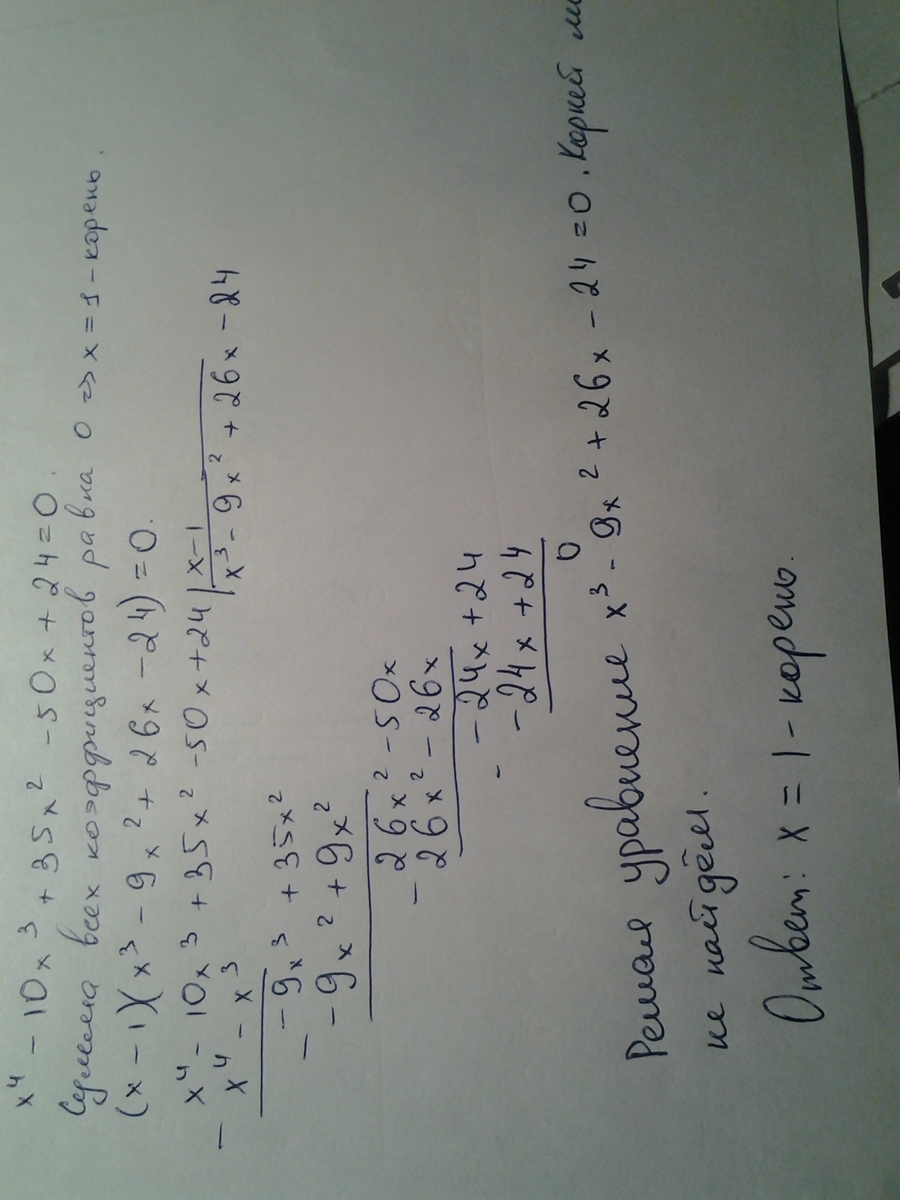 x⁴ - 10x³ + 35x² - 50x + 24 = 0.
Сумма всех коэффициентов равна 0 => x = 1 - корень.
(x - 1)(x³ - 9x² + 26x - 24) = 0.
x⁴ - 10x³ + 35x² - 50x + 24 | x - 1
- x⁴ - x³
x³ - 9x² + 26x - 24
- 9x³ + 35x²
- - 9x² + 9x²
26x² - 50x
- 26x² - 26x
- 24x + 24
- - 24x + 24
0
Решая уравнение x³ - 9x² + 26x - 24 = 0. Корней
не найдём.
Ответ: x = 1 - корень.